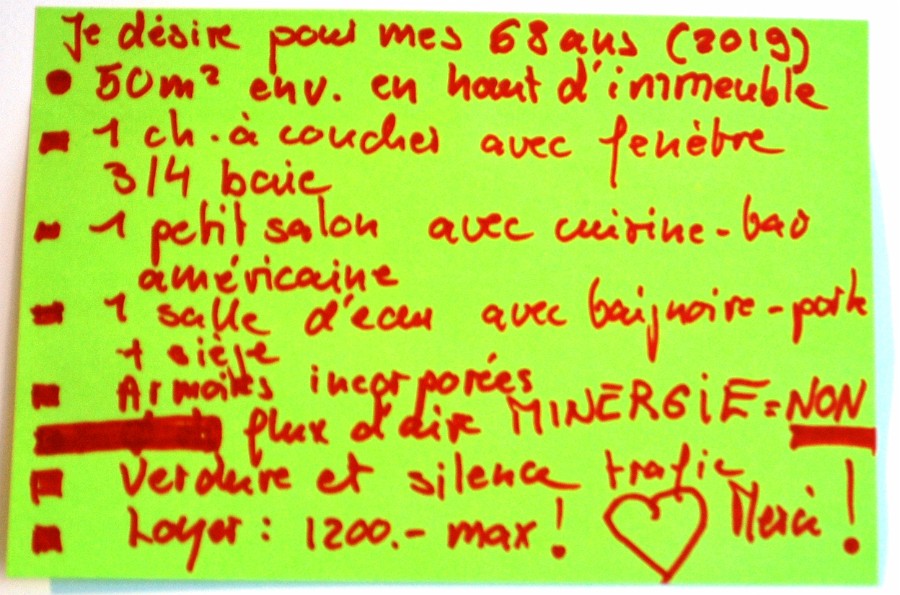 Je désire pour mes 68 ans (2019)
50m² env. en haut d'immeuble
1 ch. à coucher avec fenêbre
3/4 baie
1 petit salon avec cuisine-bar
américaine
1 salle d'eau avec baignoire-porte
+ siège
Armoires incorporées
flux d'air MINERGiE = NON
Verdure et silence trafic
Loyer : 1200.- max ! Merci !